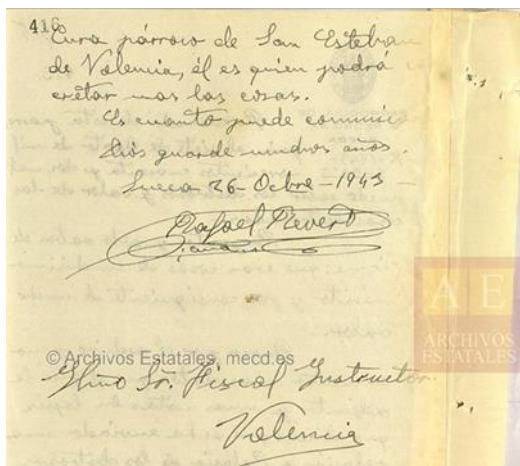 416
Cura párroco de San Esteban
de Valencia, él es quien podrá
cretar mas las cosas.
Es cuanto puede comunic
Dios guarde muchos años.
Sueca 26 - Octbre - 1943
Rafael Revert
© Archivos Estatales, mecd.es
A E
ARCHIVOS
ESTATALES
Sr. Fiscal Instructor.
Valencia